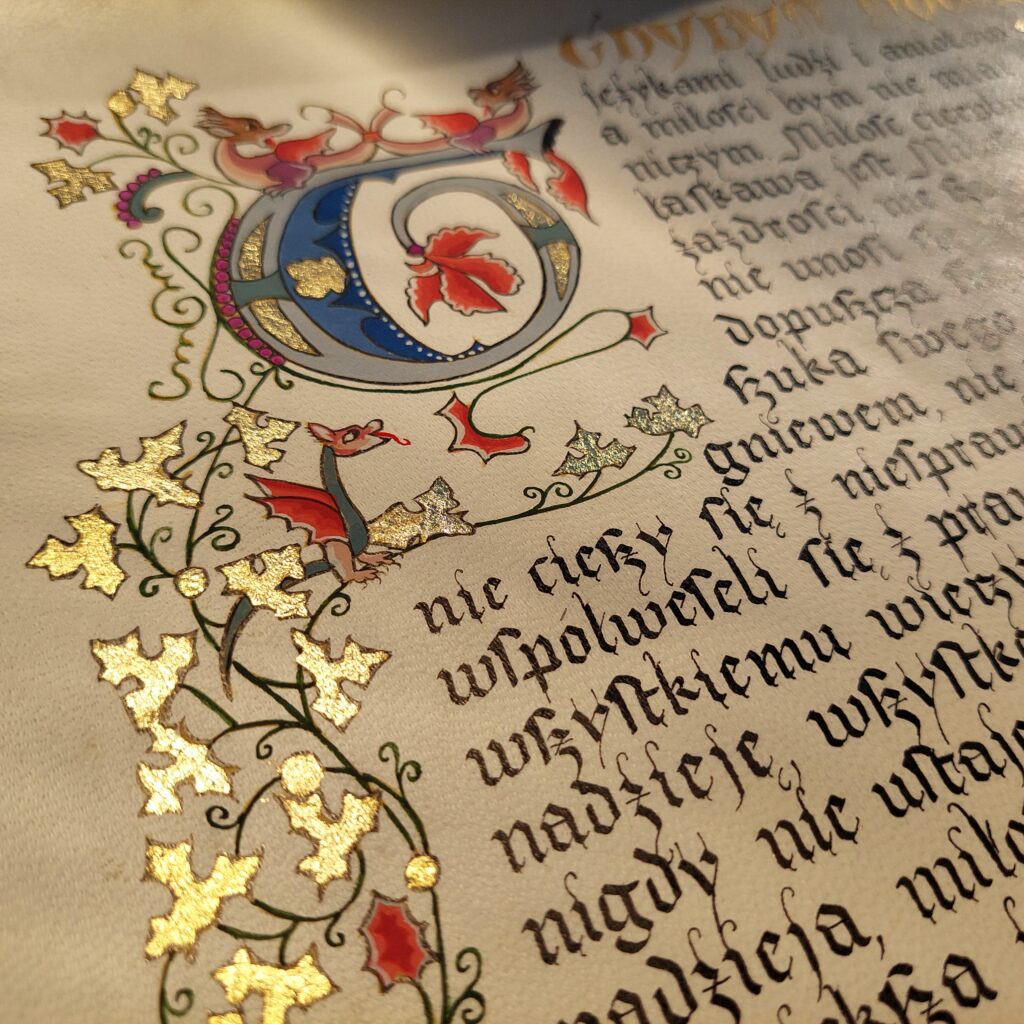 GDYBYM
językami ludzi i aniołów
a miłości bym nie miał
niczym Miłość
łaskawa jest
zazdrości nie
nie unosi
dopuszcza
szuka swego
gniewem, nie
nie cieszy się z niespraw
współweseli się z pra
wszystkiemu wierzy
nadzieję, wszystk
nigdy nie ustaje
nadzieja, miło
ksza